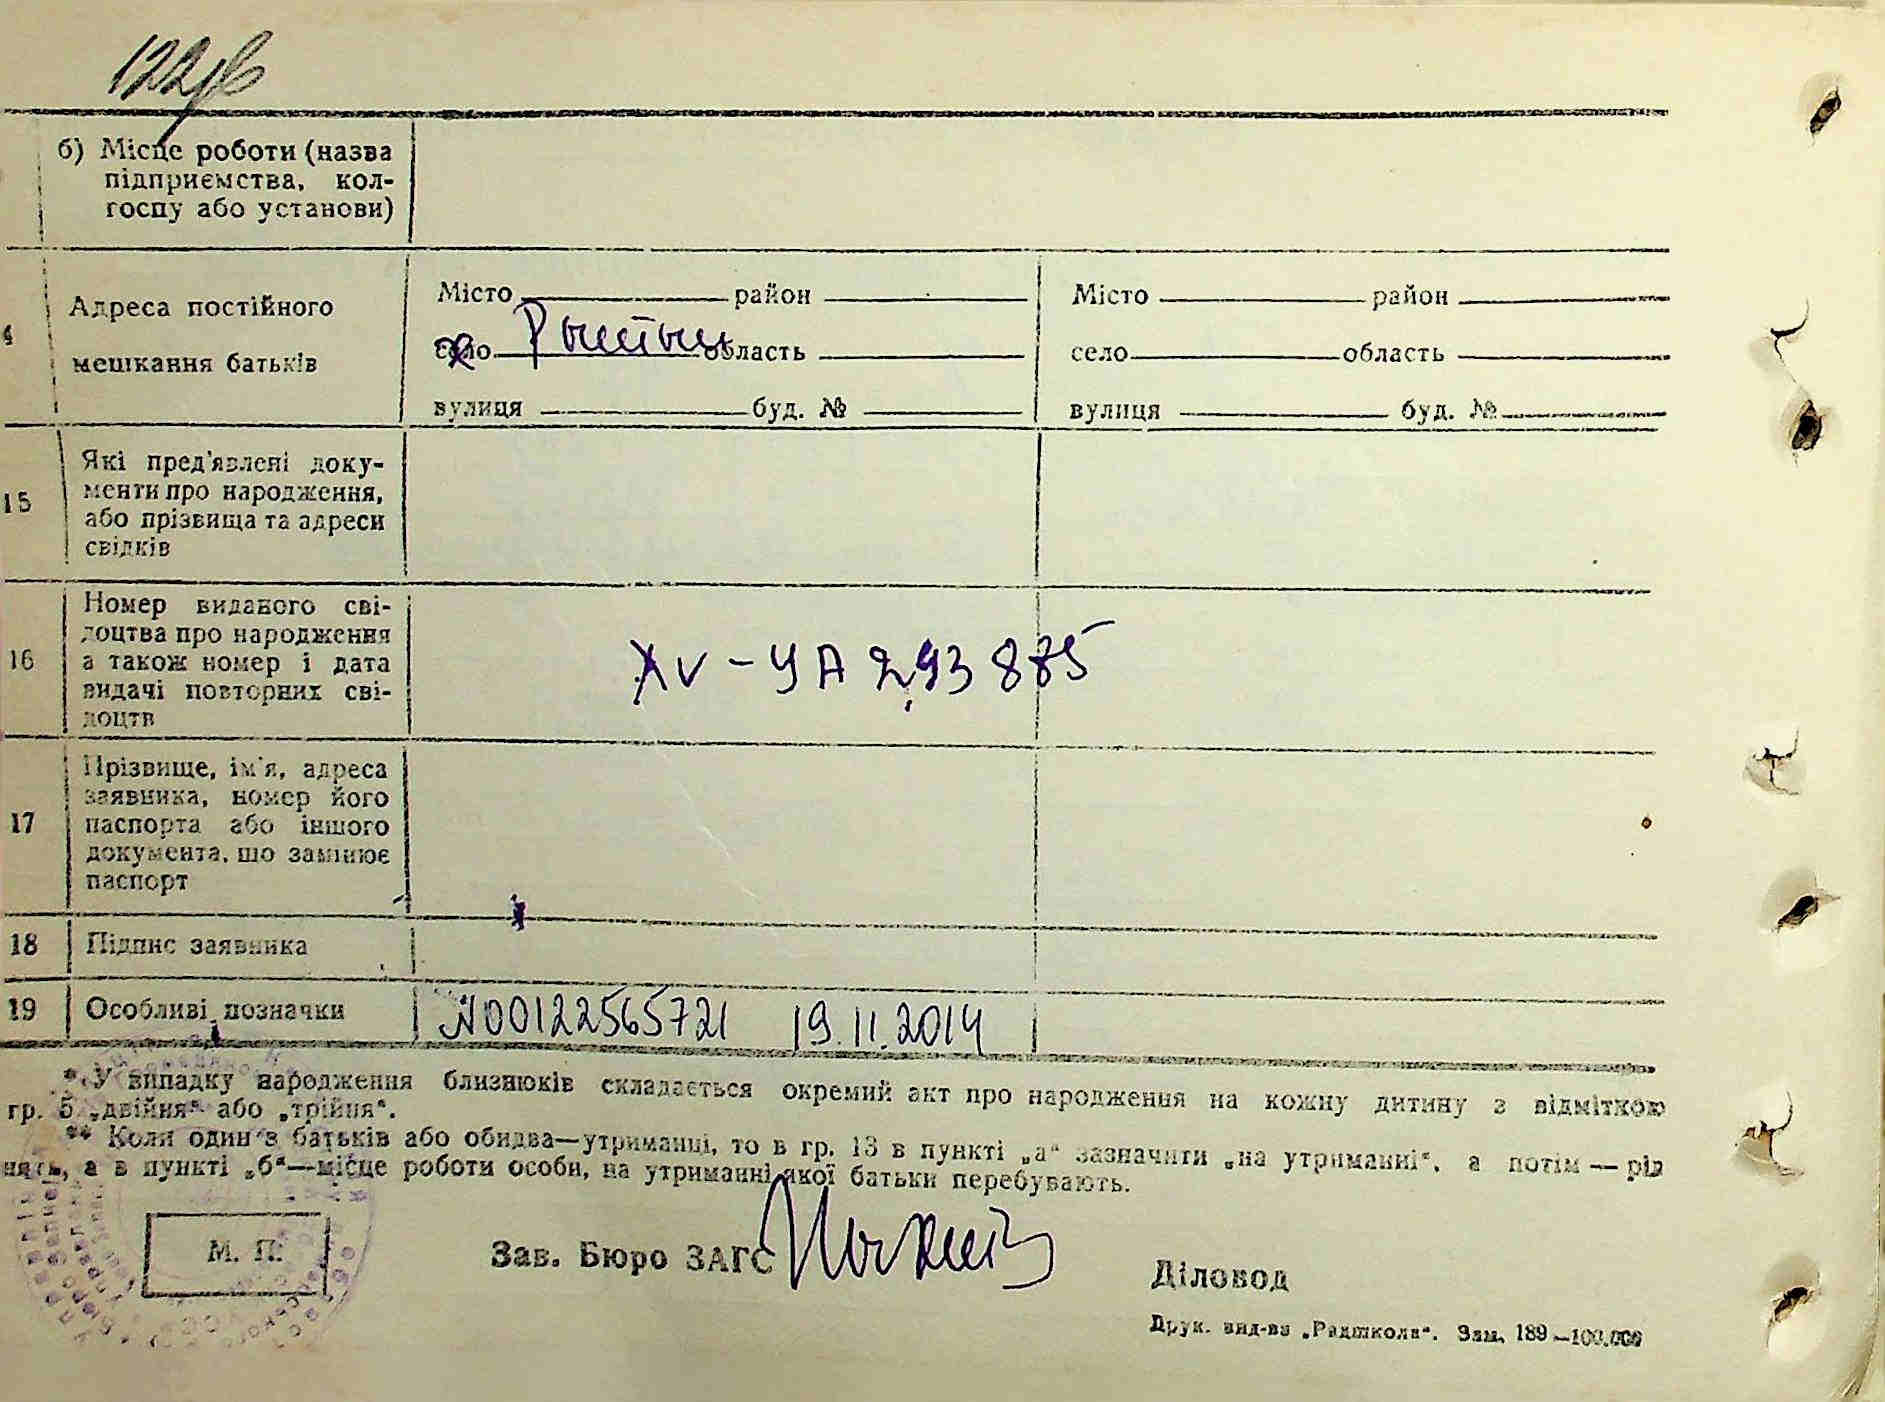 122
б) Місце роботи (назва
підприємства, кол-
госпу або установи)
4
Адреса постійного
мешкання батьків
Місто район
село область
вулиця буд. №
Місто район
село область
вулиця буд. №
15
Які пред'явлені доку-
менти про народження,
або прізвища та адреси
свідків
16
Номер виданого сві-
доцтва про народження
а також номер і дата
видачі повторних сві-
доцтв
XV-УА 293885
17
Прізвище, ім'я, адреса
заявника, номер його
паспорта або іншого
документа, що замінює
паспорт
18
Підпис заявника
19
Особливі позначки
N00122565721 19.11.2014
* У випадку народження близнюків складається окремий акт про народження на кожну дитину з відміткою
гр. 5 „двійня" або „трійня".
** Коли один з батьків або обидва—утриманці, то в гр. 13 в пункті „а" зазначити „на утриманні", а потім — рід
а в пункті „б"—місце роботи особи, на утриманні якої батьки перебувають.
М. П.
Зав. Бюро ЗАГС
Діловод
Друк. вид-ва „Радшкола". Зам. 189—100.000